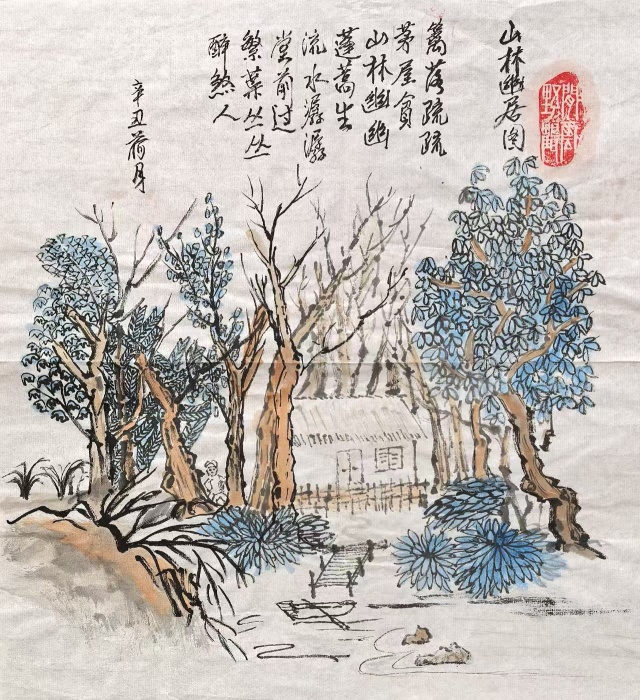 山林幽居图
篱落疏疏
茅屋貧
山林幽幽
蓬蒿生
流水潺潺
堂前过
繁葉丛丛
醉煞人
辛丑荷月